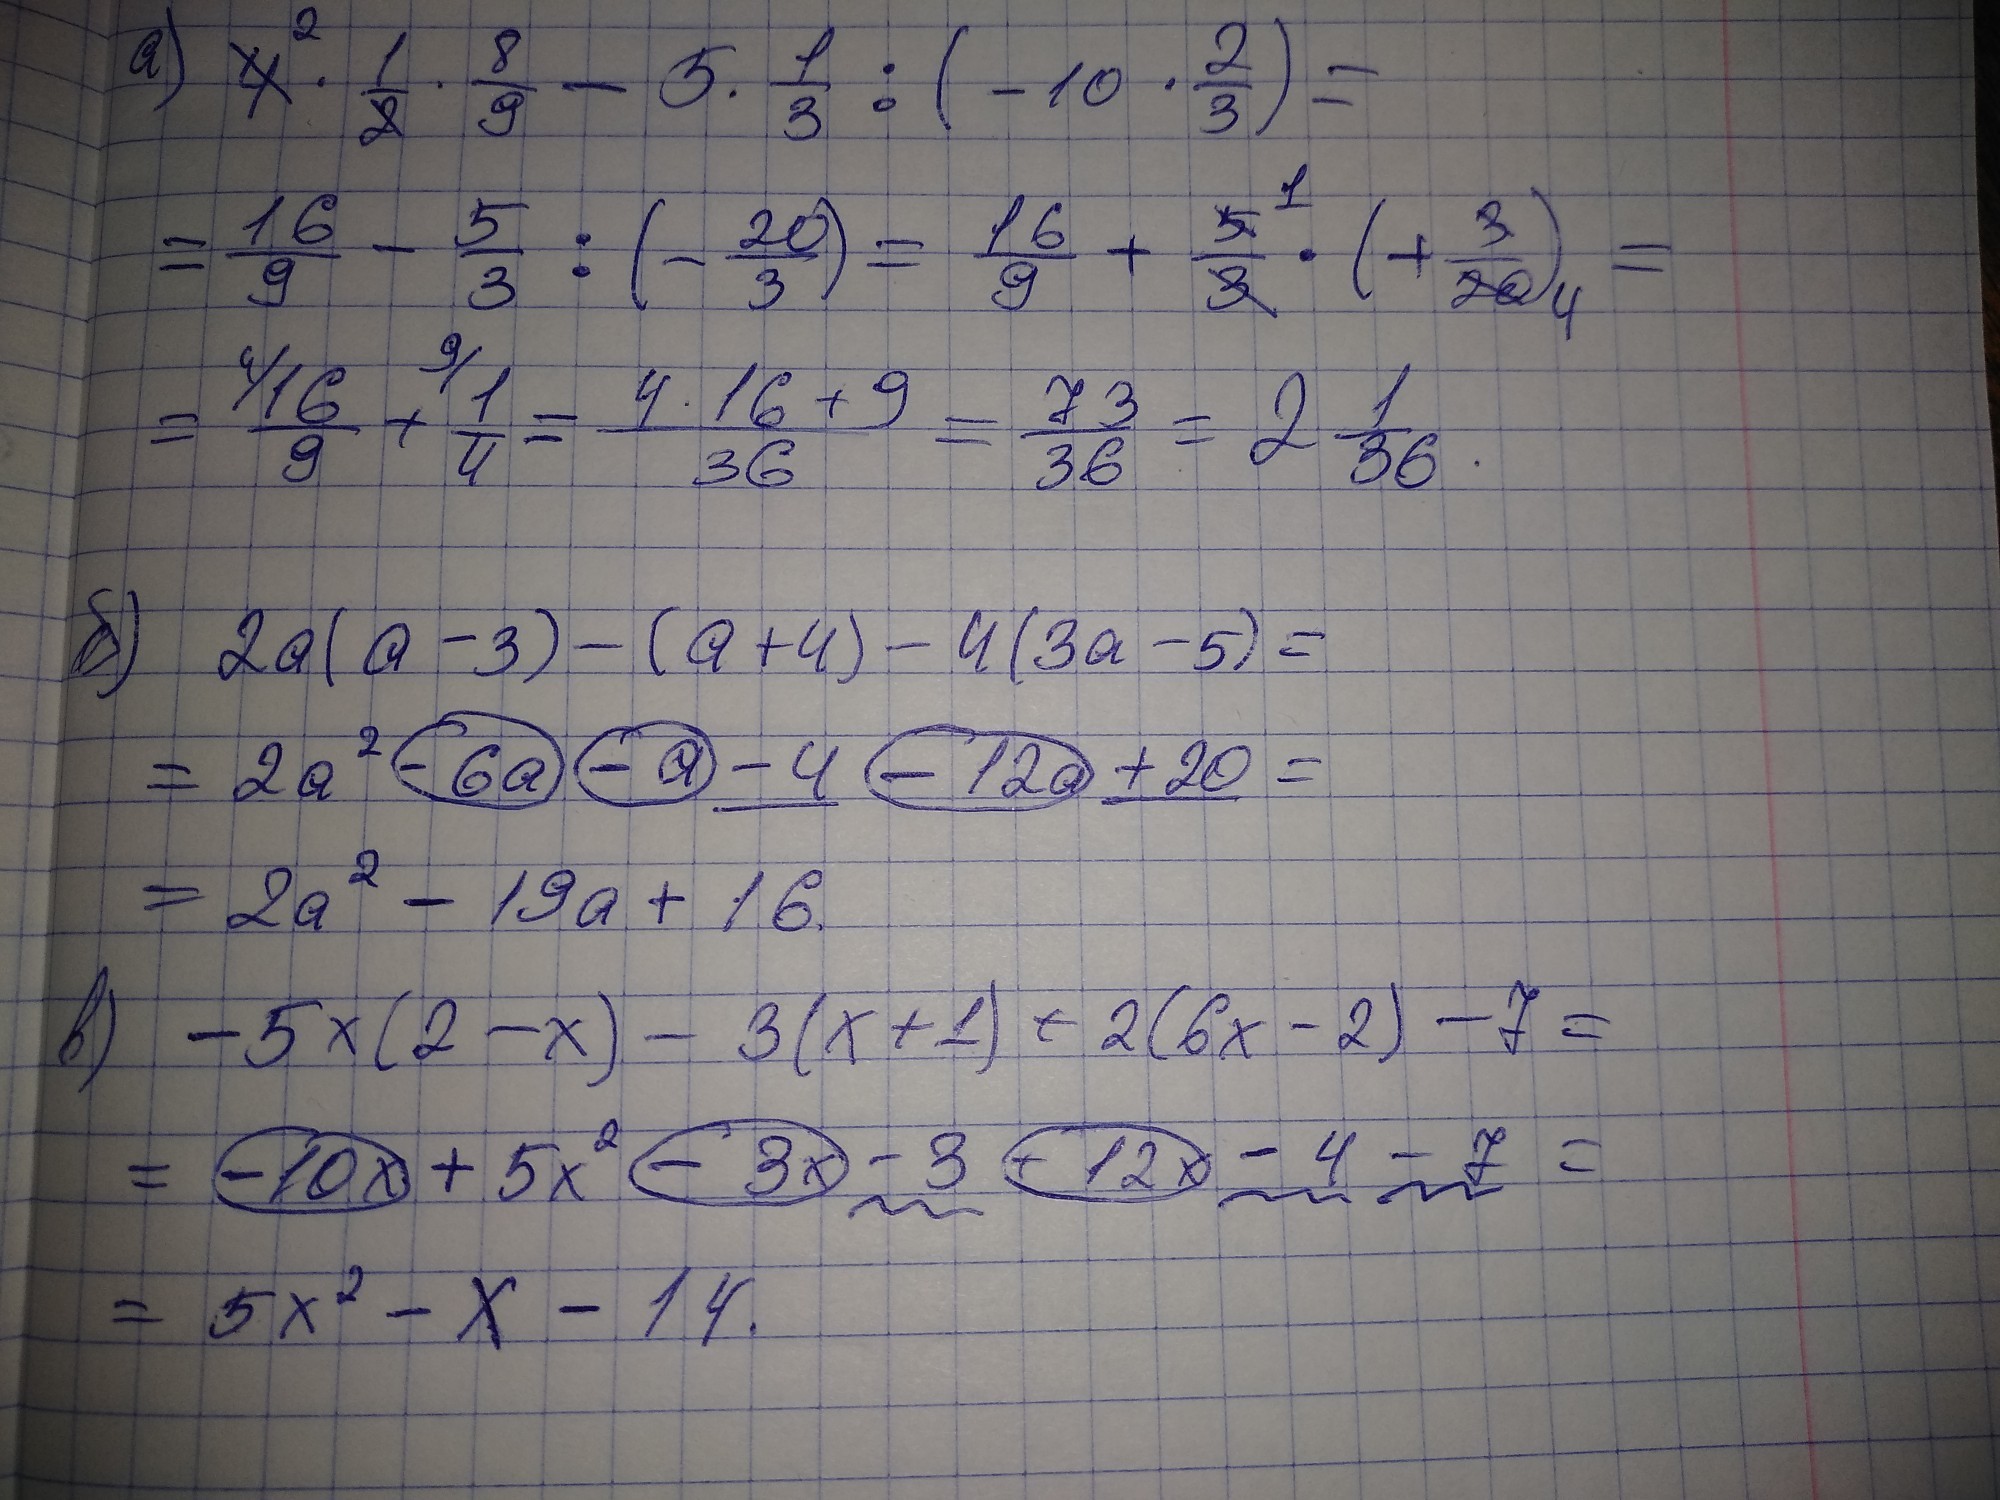 а) 4² · 1/2 · 8/9 − 5 · 1/3 : (−10 · 2/3) =
= 16/9 − 5/3 : (−20/3) = 16/9 + 5/3 ¹ · (+3/20)₄ =
= ⁴/16/9 + ⁹/1/4 = 4·16+9/36 = 73/36 = 2 1/36.
б) 2a(a − 3) − (a + 4) − 4(3a − 5) =
= 2a² − 6a − a − 4 − 12a + 20 =
= 2a² − 19a + 16.
в) −5x(2 − x) − 3(x + 1) + 2(6x − 2) − 7 =
= −10x + 5x² − 3x − 3 + 12x − 4 − 7 =
= 5x² − x − 14.